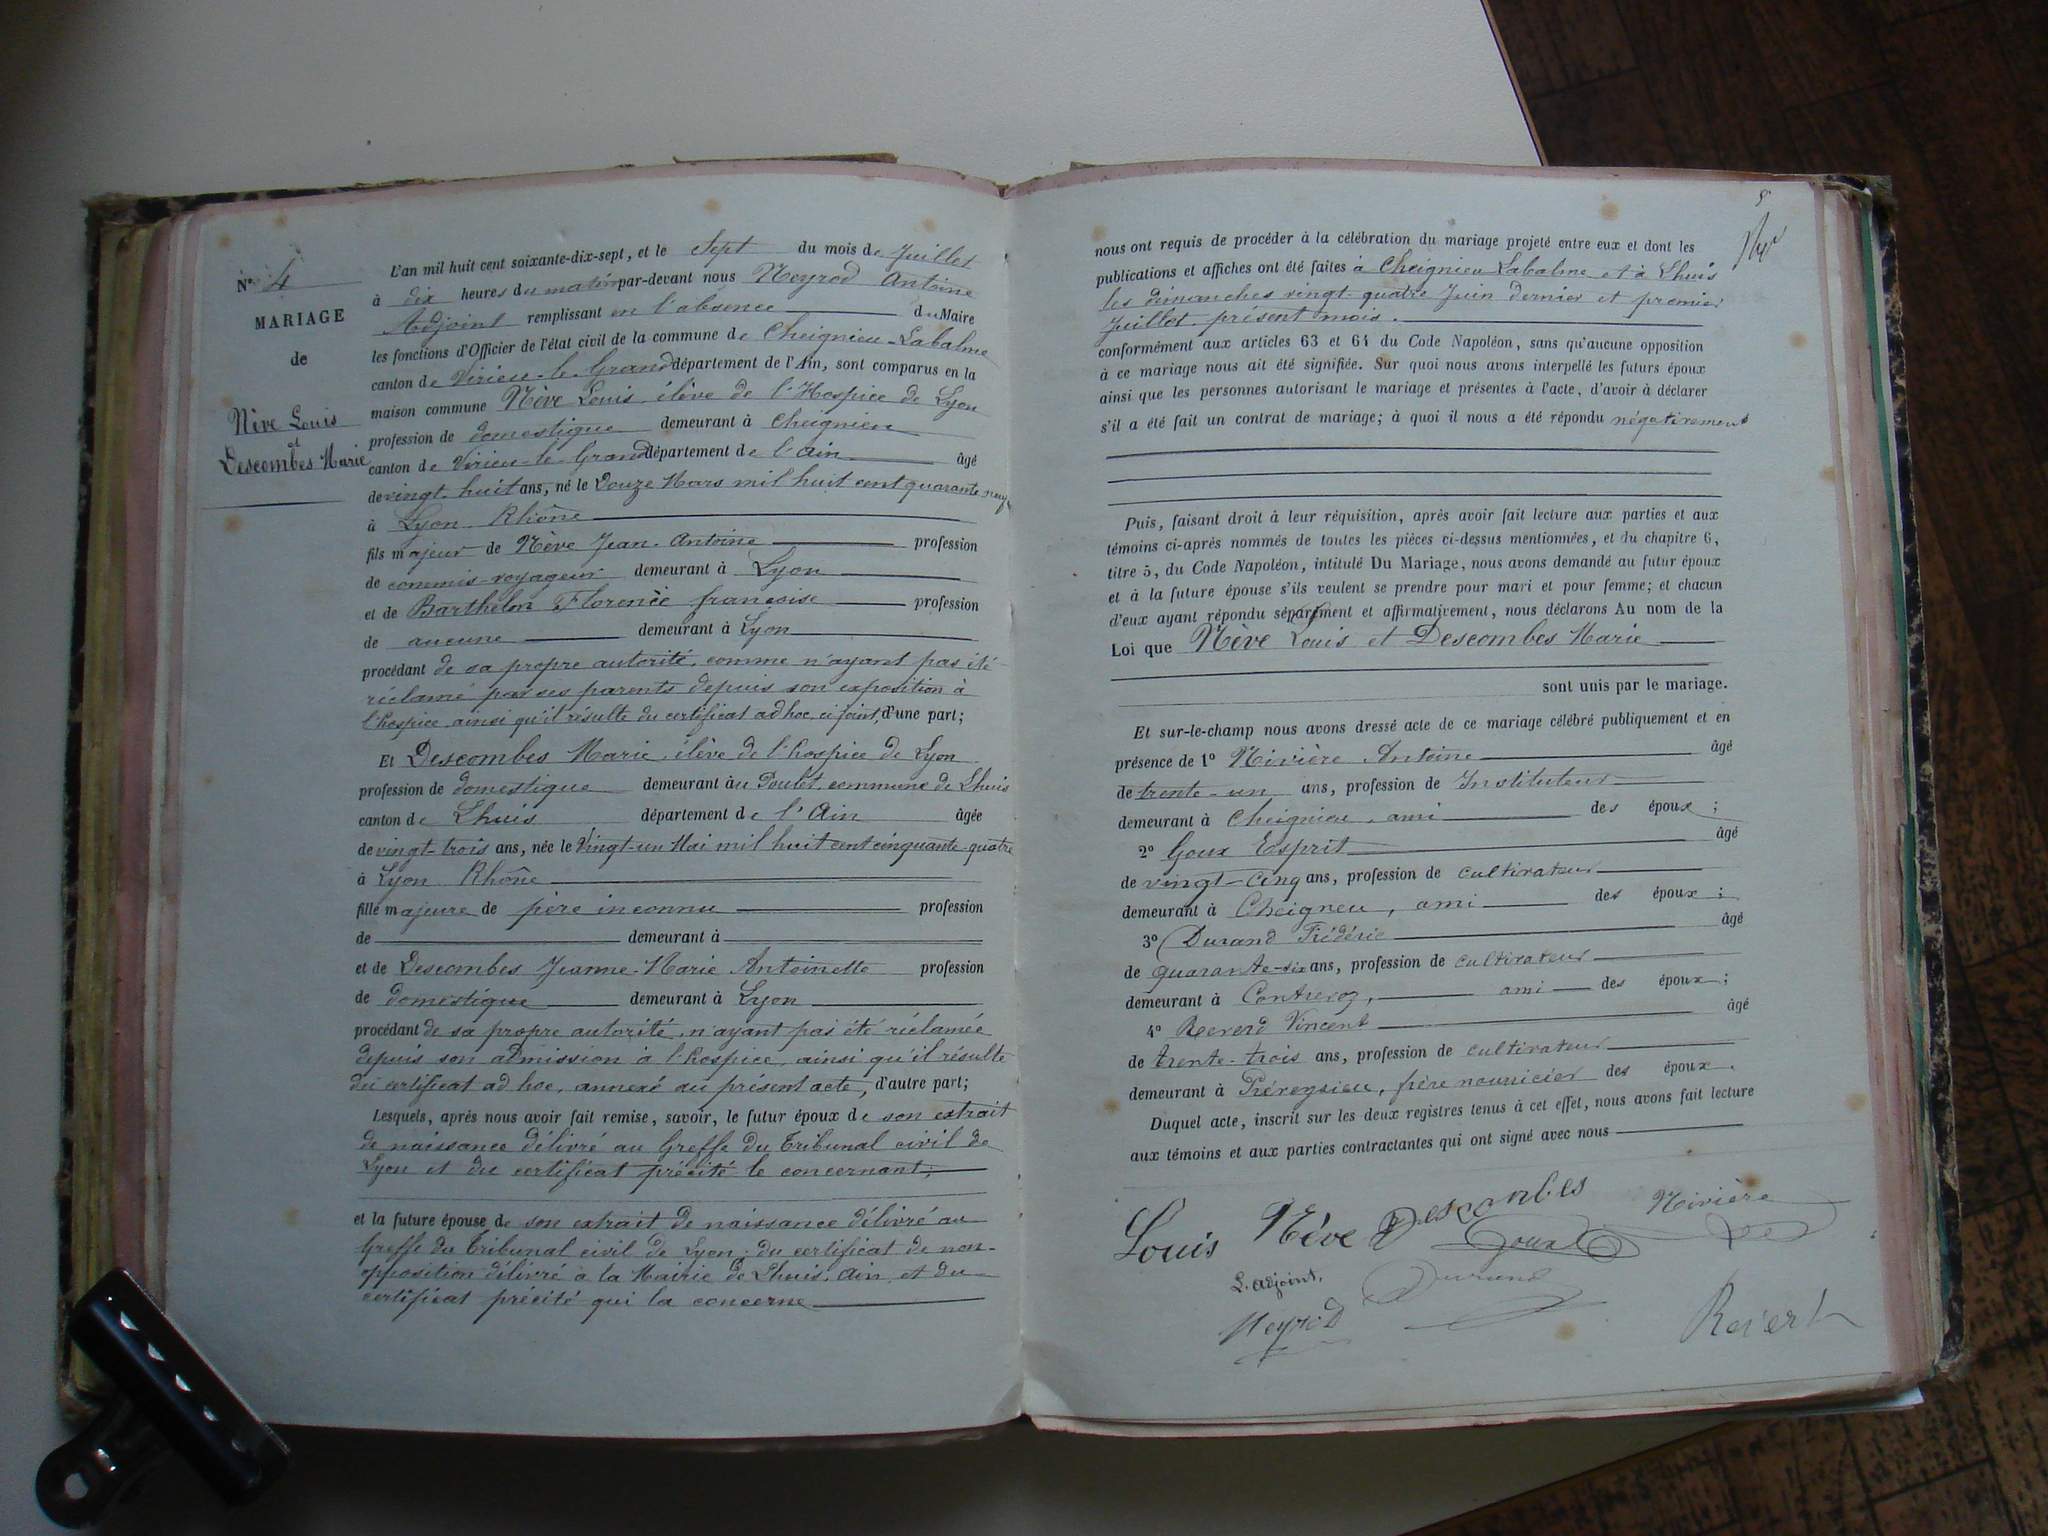 N° 4
MARIAGE
de
Nève Louis
et
Descombes Marie
L'an mil huit cent soixante-dix-sept, et le Sept du mois de Juillet
à dix heures du matin par-devant nous Neyrod Antoine
Adjoint remplissant en l'absence du Maire
les fonctions d'Officier de l'état civil de la commune de Cheignieu-Labalme
canton de Virieu-le-Grand département de l'Ain, sont comparus en la
maison commune Nève Louis, élève de l'Hospice de Lyon
profession de domestique demeurant à Cheignieu
canton de Virieu-le-Grand département de l'Ain âgé
de vingt-huit ans, né le Douze Mars mil huit cent quarante neuf
à Lyon Rhône
fils majeur de Nève Jean-Antoine profession
de commis-voyageur demeurant à Lyon
et de Barthelon Florence françoise profession
de aucune demeurant à Lyon
procédant de sa propre autorité, comme n'ayant pas été
réclamé par ses parents depuis son exposition à
l'hospice ainsi qu'il résulte du certificat ad hoc, ci joint, d'une part;
Et Descombes Marie, élève de l'hospice de Lyon
profession de domestique demeurant au Poulet, commune de Lhuis
canton de Lhuis département de l'Ain âgée
de vingt-trois ans, née le Vingt-un Mai mil huit cent cinquante-quatre
à Lyon Rhône
fille majeure de père inconnu profession
de demeurant à
et de Descombes Jeanne-Marie Antoinette profession
de domestique demeurant à Lyon
procédant de sa propre autorité, n'ayant pas été réclamée
depuis son admission à l'hospice, ainsi qu'il résulte
du certificat ad hoc, annexé au présent acte, d'autre part;
Lesquels, après nous avoir fait remise, savoir, le futur époux de son extrait
de naissance délivré au Greffe du Tribunal civil de
Lyon et du certificat précité le concernant;
et la future épouse de son extrait de naissance délivré au
Greffe du Tribunal civil de Lyon; du certificat de non-
opposition délivré à la Mairie de Lhuis, Ain, et du
certificat précité qui la concerne
5
nous ont requis de procéder à la célébration du mariage projeté entre eux et dont les
publications et affiches ont été faites à Cheignieu Labalme et à Lhuis
les dimanches vingt-quatre Juin dernier et premier
Juillet présent mois.
conformément aux articles 63 et 64 du Code Napoléon, sans qu'aucune opposition
à ce mariage nous ait été signifiée. Sur quoi nous avons interpellé les futurs époux
ainsi que les personnes autorisant le mariage et présentes à l'acte, d'avoir à déclarer
s'il a été fait un contrat de mariage; à quoi il nous a été répondu négativement
Puis, faisant droit à leur réquisition, après avoir fait lecture aux parties et aux
témoins ci-après nommés de toutes les pièces ci-dessus mentionnées, et du chapitre 6,
titre 5, du Code Napoléon, intitulé Du Mariage, nous avons demandé au futur époux
et à la future épouse s'ils veulent se prendre pour mari et pour femme; et chacun
d'eux ayant répondu séparément et affirmativement, nous déclarons Au nom de la
Loi que Nève Louis et Descombes Marie
sont unis par le mariage.
Et sur-le-champ nous avons dressé acte de ce mariage célébré publiquement et en
présence de 1° Nivière Antoine âgé
de trente-un ans, profession de Instituteur
demeurant à Cheignieu, ami des époux;
2° Goux Esprit âgé
de vingt-cinq ans, profession de cultivateur
demeurant à Cheigneu, ami des époux;
3° Durand Frédéric âgé
de quarante-six ans, profession de cultivateur
demeurant à Contrevoz, ami des époux;
4° Reverd Vincent âgé
de trente-trois ans, profession de cultivateur
demeurant à Préveysieu, père nourricier des époux.
Duquel acte, inscrit sur les deux registres tenus à cet effet, nous avons fait lecture
aux témoins et aux parties contractantes qui ont signé avec nous
Louis Nève Descombes Nivière
Goux
L. adjoint, Durand
Neyrod Reverd